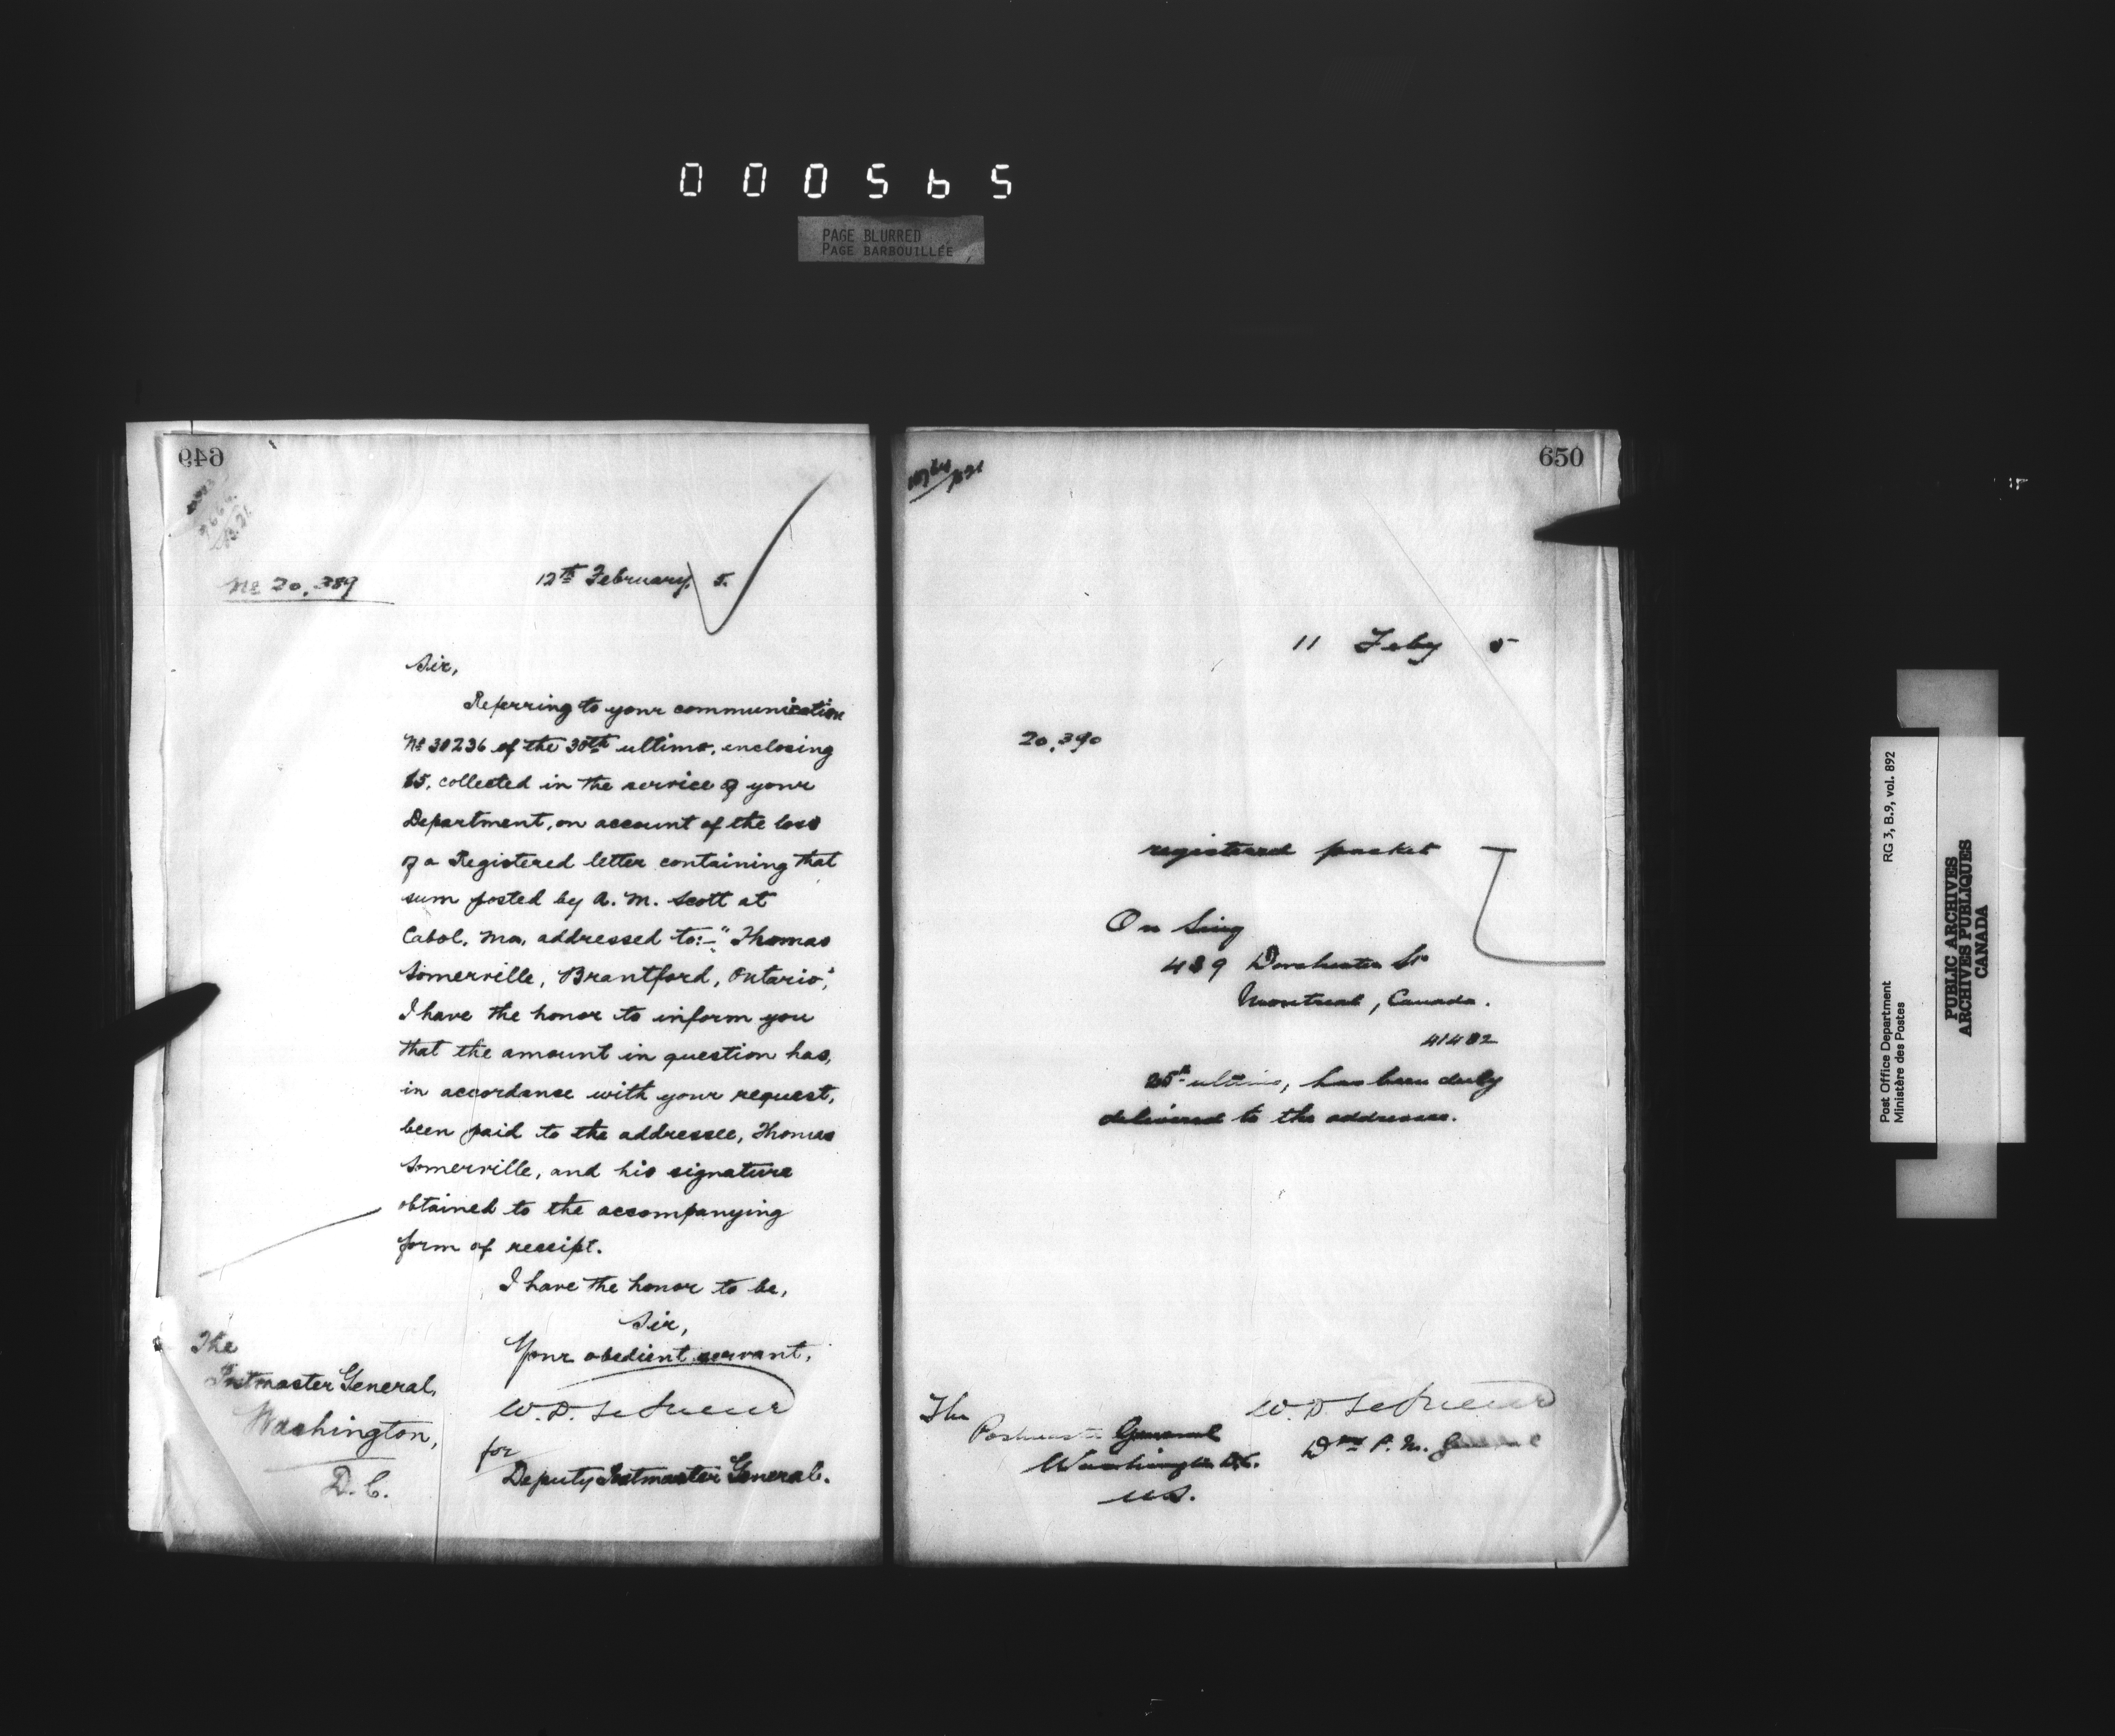 000565
PAGE BLURRED
PAGE BARBOUILLÉE
649
No 20,389
12th February, 5.
Sir,
Referring to your communication
No 30236 of the 30th ultimo, enclosing
$5, collected in the service of your
Department, on account of the loss
of a Registered letter containing that
sum posted by A. M. Scott at
Cabol, Mo, addressed to:- "Thomas
Somerville, Brantford, Ontario",
I have the honor to inform you
that the amount in question has,
in accordance with your request,
been paid to the addressee, Thomas
Somerville, and his signature
obtained to the accompanying
form of receipt.
I have the honor to be,
Sir,
Your obedient servant,
W. D. LeSueur
for
Deputy Postmaster General.
The
Postmaster General,
Washington,
D. C.
650
11 Feby 5
20,390
registered packet
On Sing
489 Dorchester St
Montreal, Canada.
41482
25th ultimo, has been duly
delivered to the addressee.
W. D. LeSueur
The
Postmaster General
Washington D.C.
U.S.
P. M. General
Post Office Department
Ministère des Postes
RG 3, B.9, vol. 892
PUBLIC ARCHIVES
ARCHIVES PUBLIQUES
CANADA